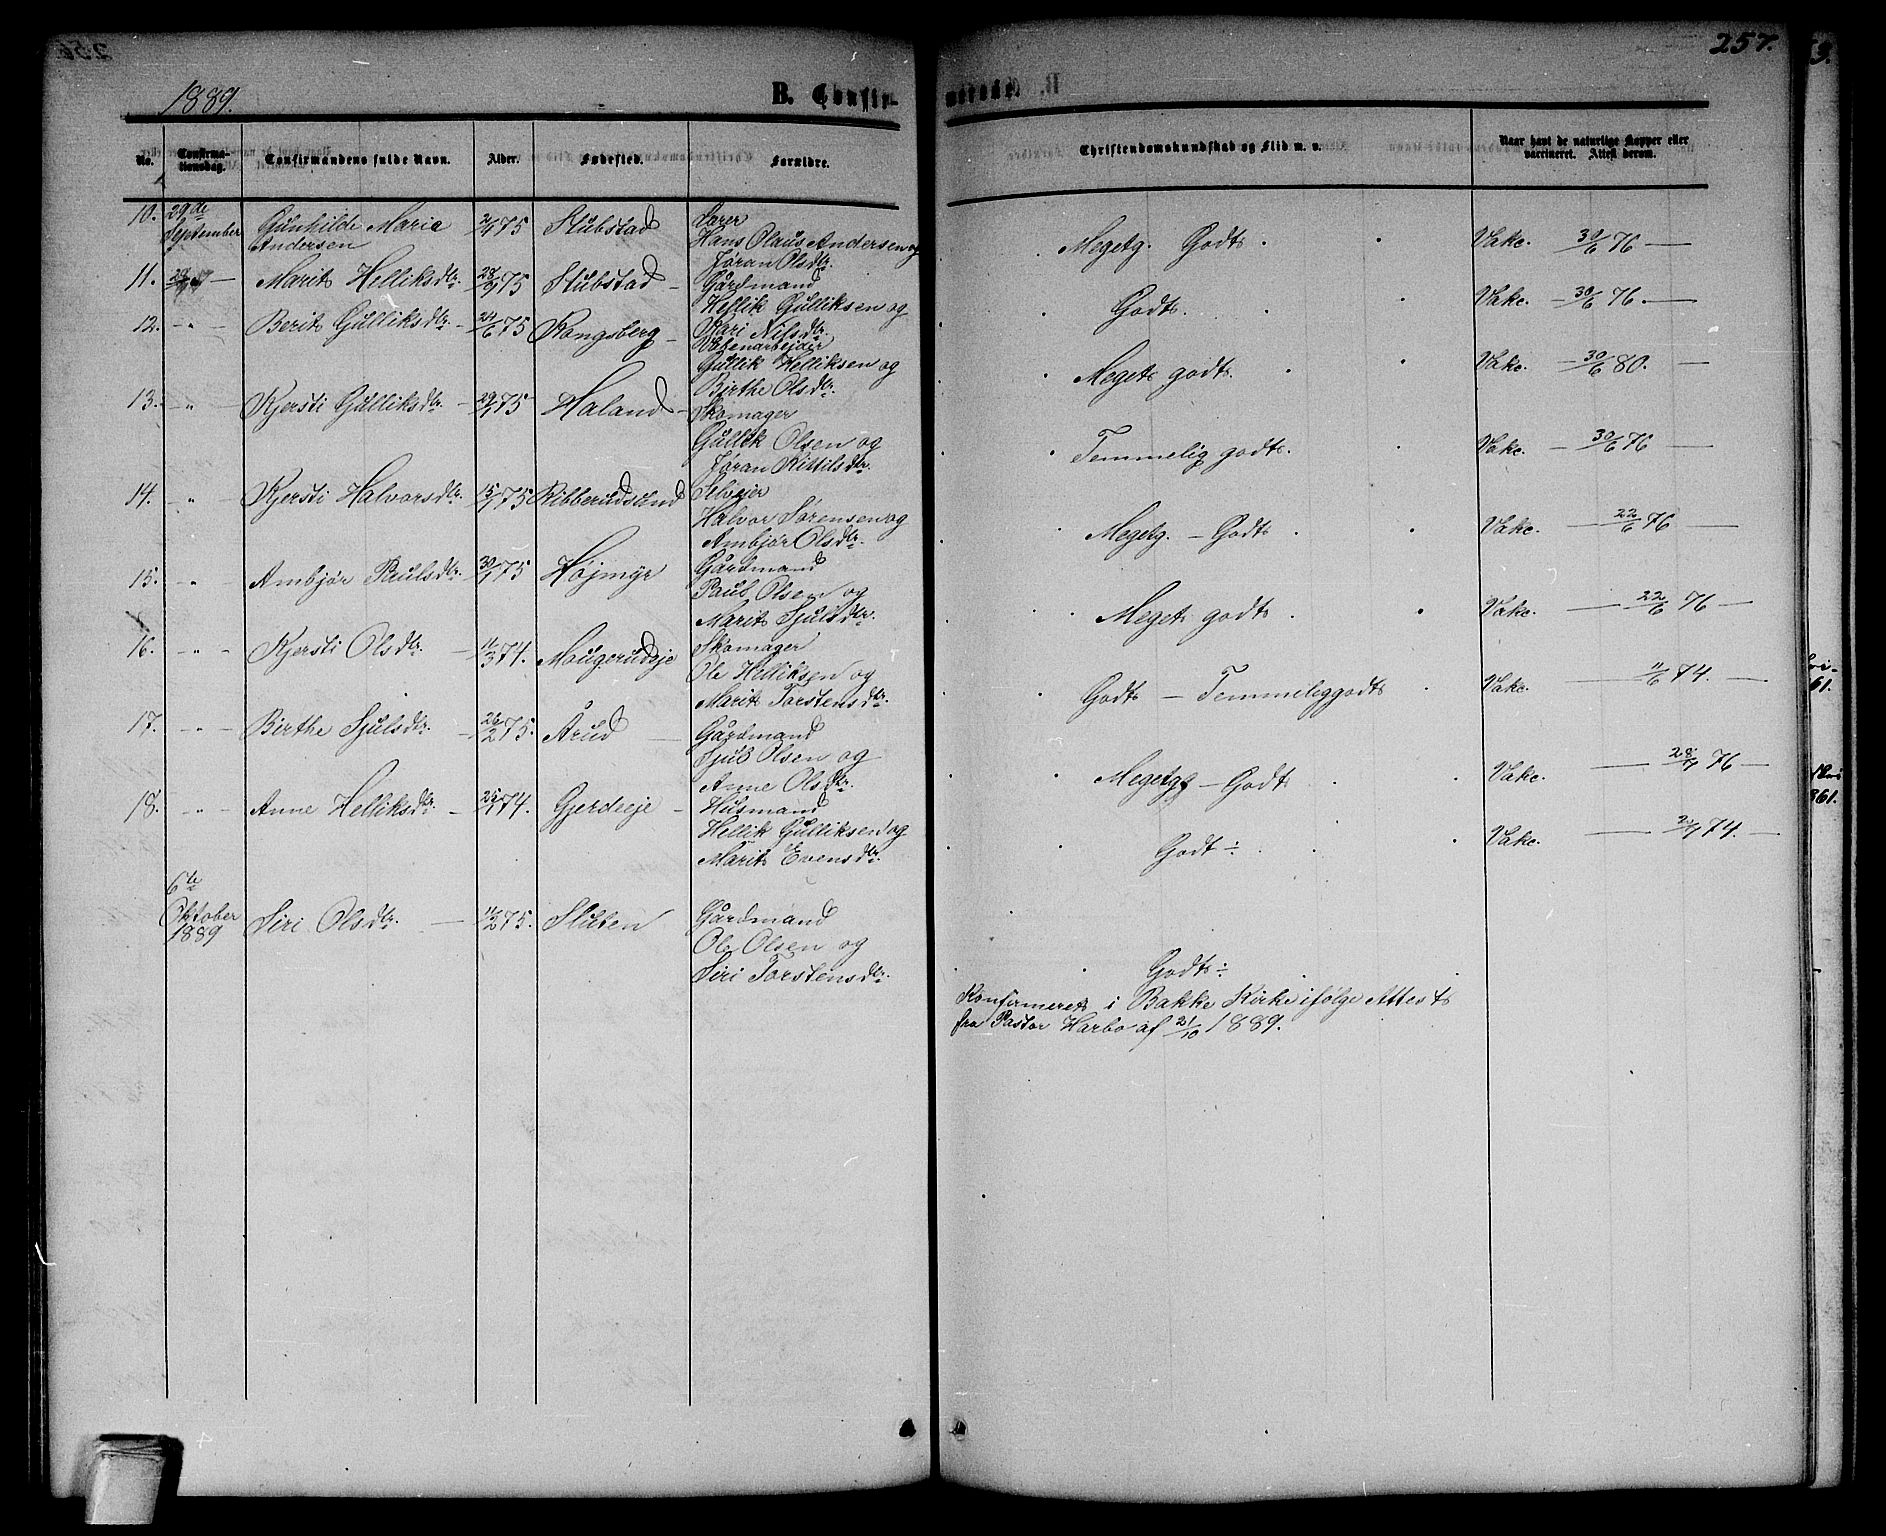 257.
1889.
B. Confir-
merede.
No.
Confirma-
tionsdag.
Confirmandens fulde Navn.
Alder.
Fødested.
Forældre.
Christendomskundskab og Flid m. v.
Naar havt de naturlige Kopper eller
vaccineret. Attest derom.
10. 29de September Gunhilde Maria Andersen 75 Stubstad Lærer
Hans Olaus Andersen og
Jøran Olsdtr.
Megetg. Godt. Vakc. 30/6 76 —
11. — Marit Helliksdtr. 75 Stubstad — Gårdmand
Hellik Gulliksen og
Kari Nilsdtr.
Godt. Vakc. — 30/6 76. —
12. — " — Berit Gulliksdtr. — 24/6 75 Kongsberg — Våbenarbejder
Gullik Helliksen og
Birthe Olsdtr.
Meget godt. Vakc. — 30/6 80. —
13. — " — Kjersti Gulliksdtr. — 75 Haland — Skomager
Gullik Olsen og
Jøran Kittilsdtr.
Temmelig godt. Vakc. — 30/6 76 —
14. — " — Kjersti Halvorsdtr. 75 Ribberudsund Selvejer
Halvor Sørensen og
Ambjør Olsdtr.
Megetg. — Godt Vakc. — 22/6 76 —
15. — " — Ambjør Paulsdtr. — 75 Højmyr Gårdmand
Paul Olsen og
Marit Sjulsdtr.
Meget godt. Vakc. — 22/6 76 —
16. — " — Kjersti Olsdtr. — 11/3 74. Mougerudeje Skomager
Ole Helliksen og
Marit Torstensdtr.
Godt — Temmeliggodt Vakc. — 11/6 74. —
17. — " — Birthe Sjulsdtr. — 26/2 75. Årud — Gårdmand
Sjul Olsen og
Anne Olsdtr.
Megetg — Godt Vakc. — 76 —
18. — " — Anne Helliksdtr. — 74. Gjerdeeje — Husmand
Hellik Gulliksen og
Marit Evensdtr.
Godt ÷ Vakc. — 74. —
6te
Oktober
1889 Siri Olsdtr. — 11/2 75. Sluten Gårdmand
Ole Olsen og
Siri Torstensdtr.
Godt ÷
Konfirmeret i Bakke Kirke ifølge Attest
fra Pastor Harbo af 21/10 1889.